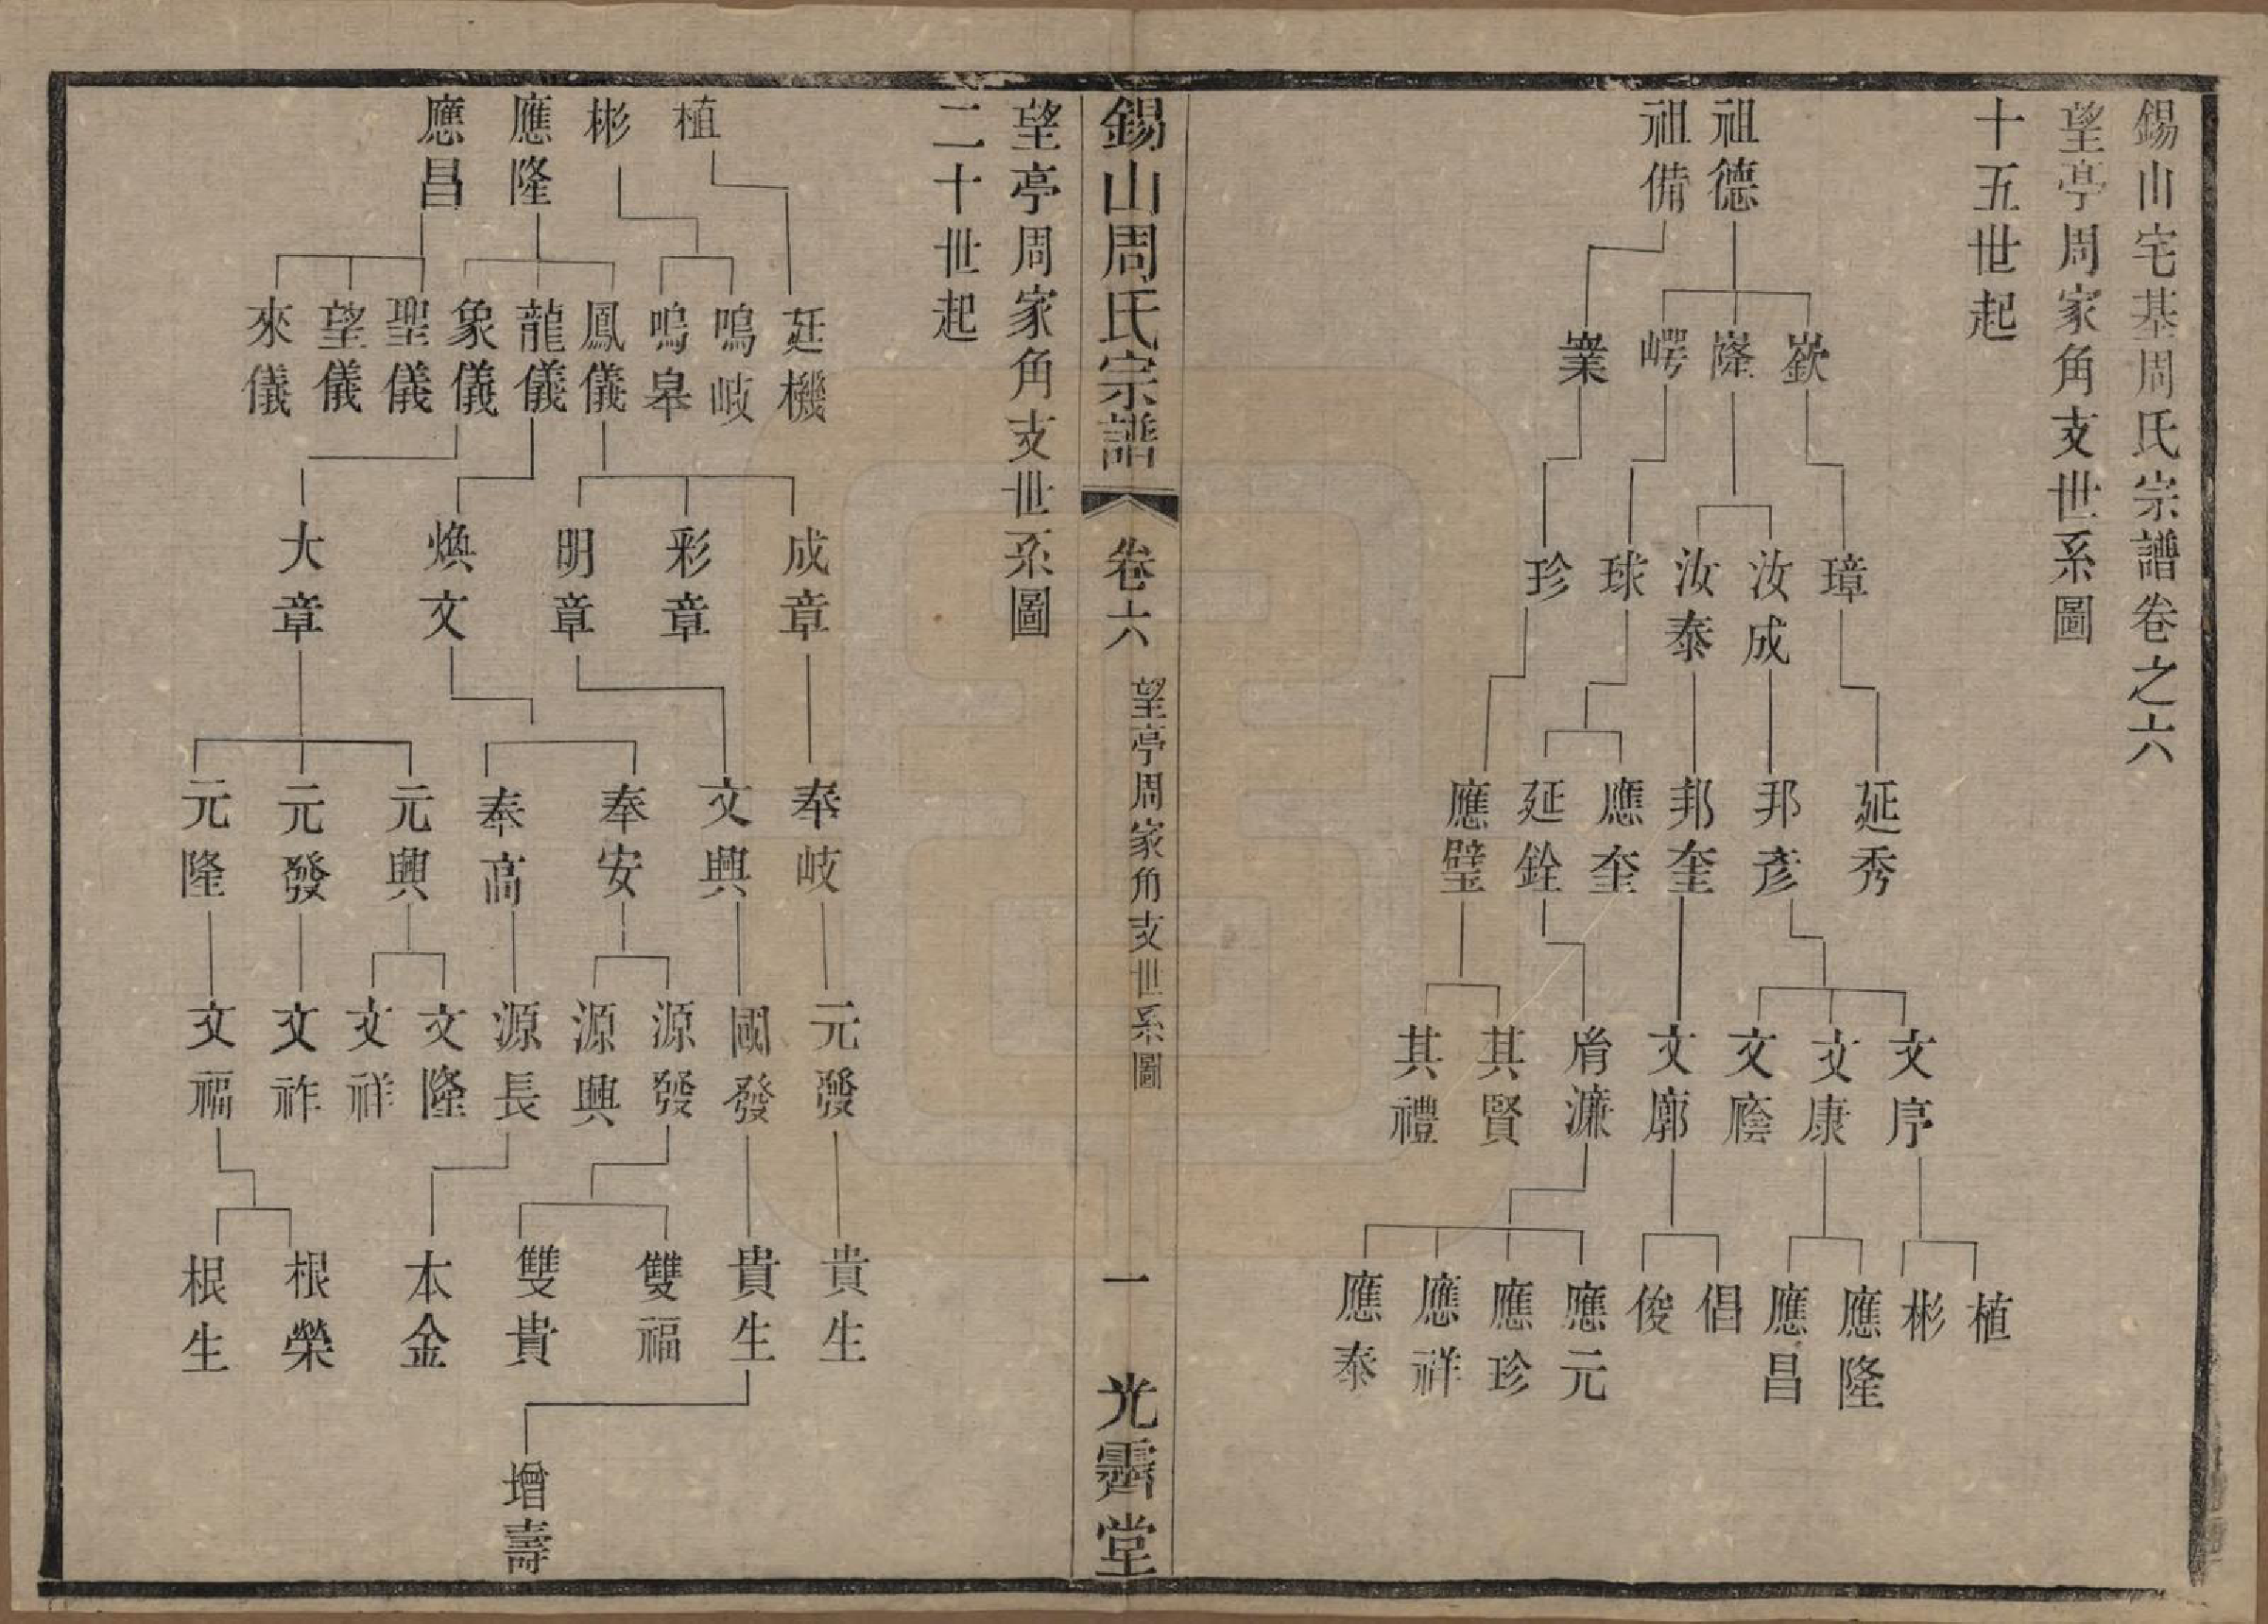 錫山宅基周氏宗譜卷之六
望亭周家角支世系圖
十五世起
祖德
祖備
嶔
嶐
崿
嶪
璋
汝成
汝泰
球
珍
延秀
邦彥
邦奎
應奎
延銓
應璧
文序
文康
文廕
文廓
脩濂
其賢
其禮
植
彬
應隆
應昌
倡
俊
應元
應珍
應祥
應泰
錫山周氏宗譜
卷六
望亭周家角支世系圖
一
光霽堂
望亭周家角支世系圖
二十世起
植
彬
應隆
應昌
廷機
鳴岐
鳴皋
鳳儀
龍儀
象儀
聖儀
望儀
來儀
成章
彩章
明章
煥文
大章
奉岐
文興
奉安
奉高
元興
元發
元隆
元發
國發
源發
源興
源長
文隆
文祥
文祚
文福
貴生
貴生
雙福
雙貴
本金
根榮
根生
增壽